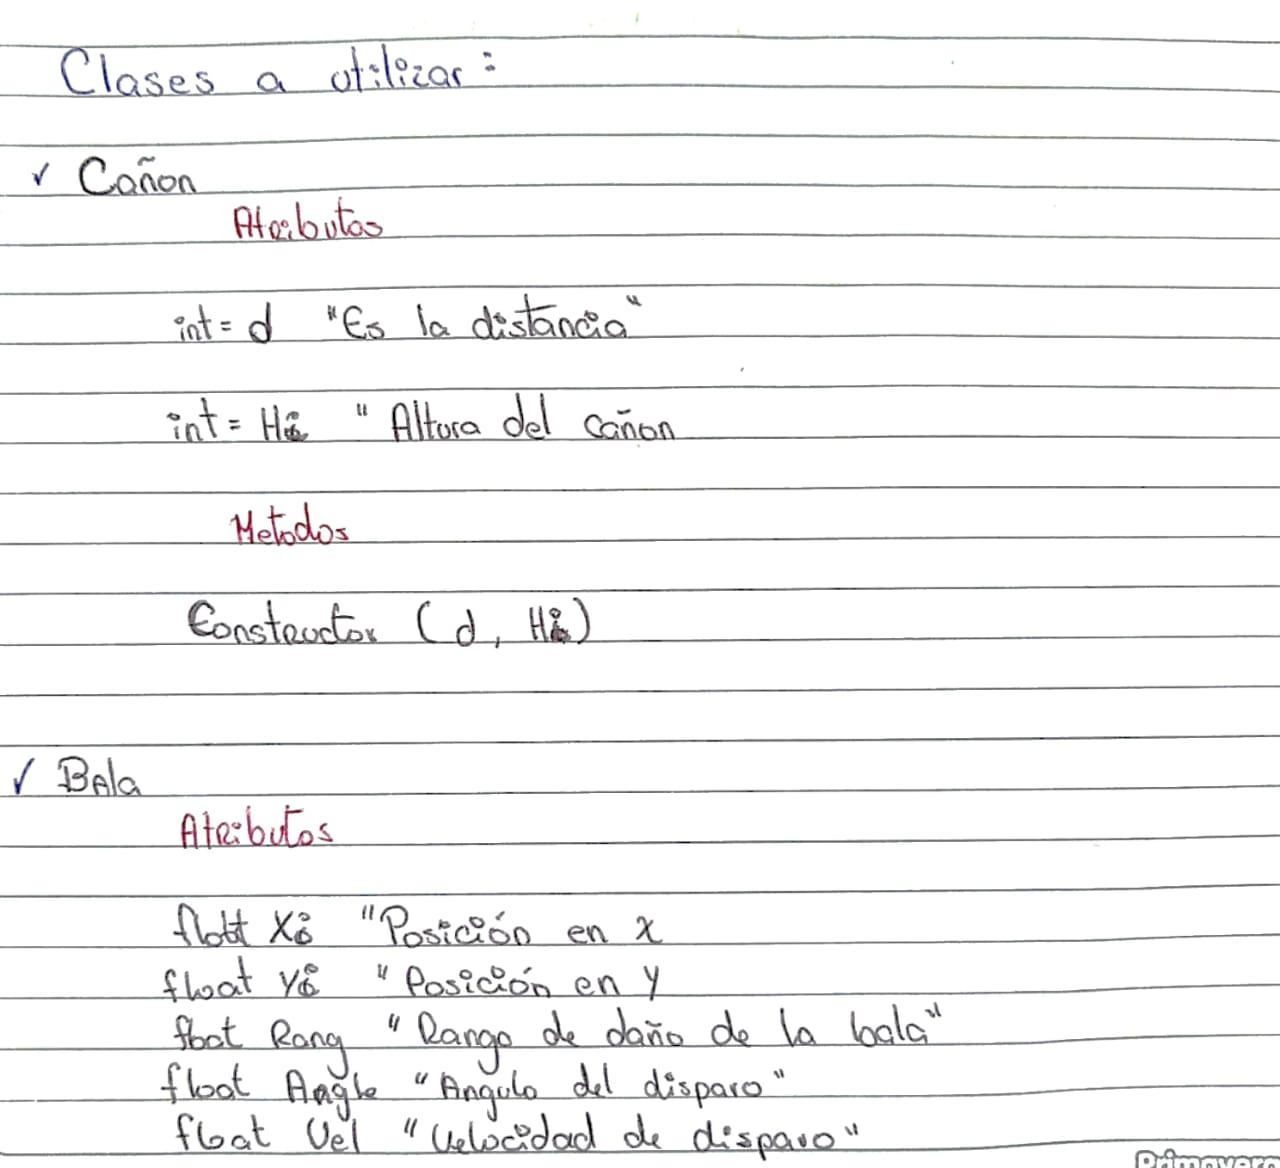 Clases a utilizar:
✓ Cañon
Atributos
int = d "Es la distancia"
int = Hi " Altura del cañon
Metodos
Constructor (d, Hi)
✓ Bala
Atributos
float Xi "Posición en x
float Yi " Posición en y
float Rang " Rango de daño de la bala"
float Angle "Angulo del disparo"
float Vel "Velocidad de disparo"
Primavera